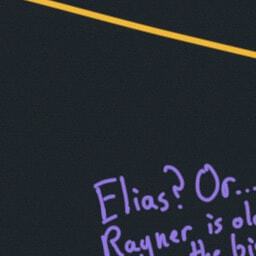 Elias? Or...
Rayner is old
the bi